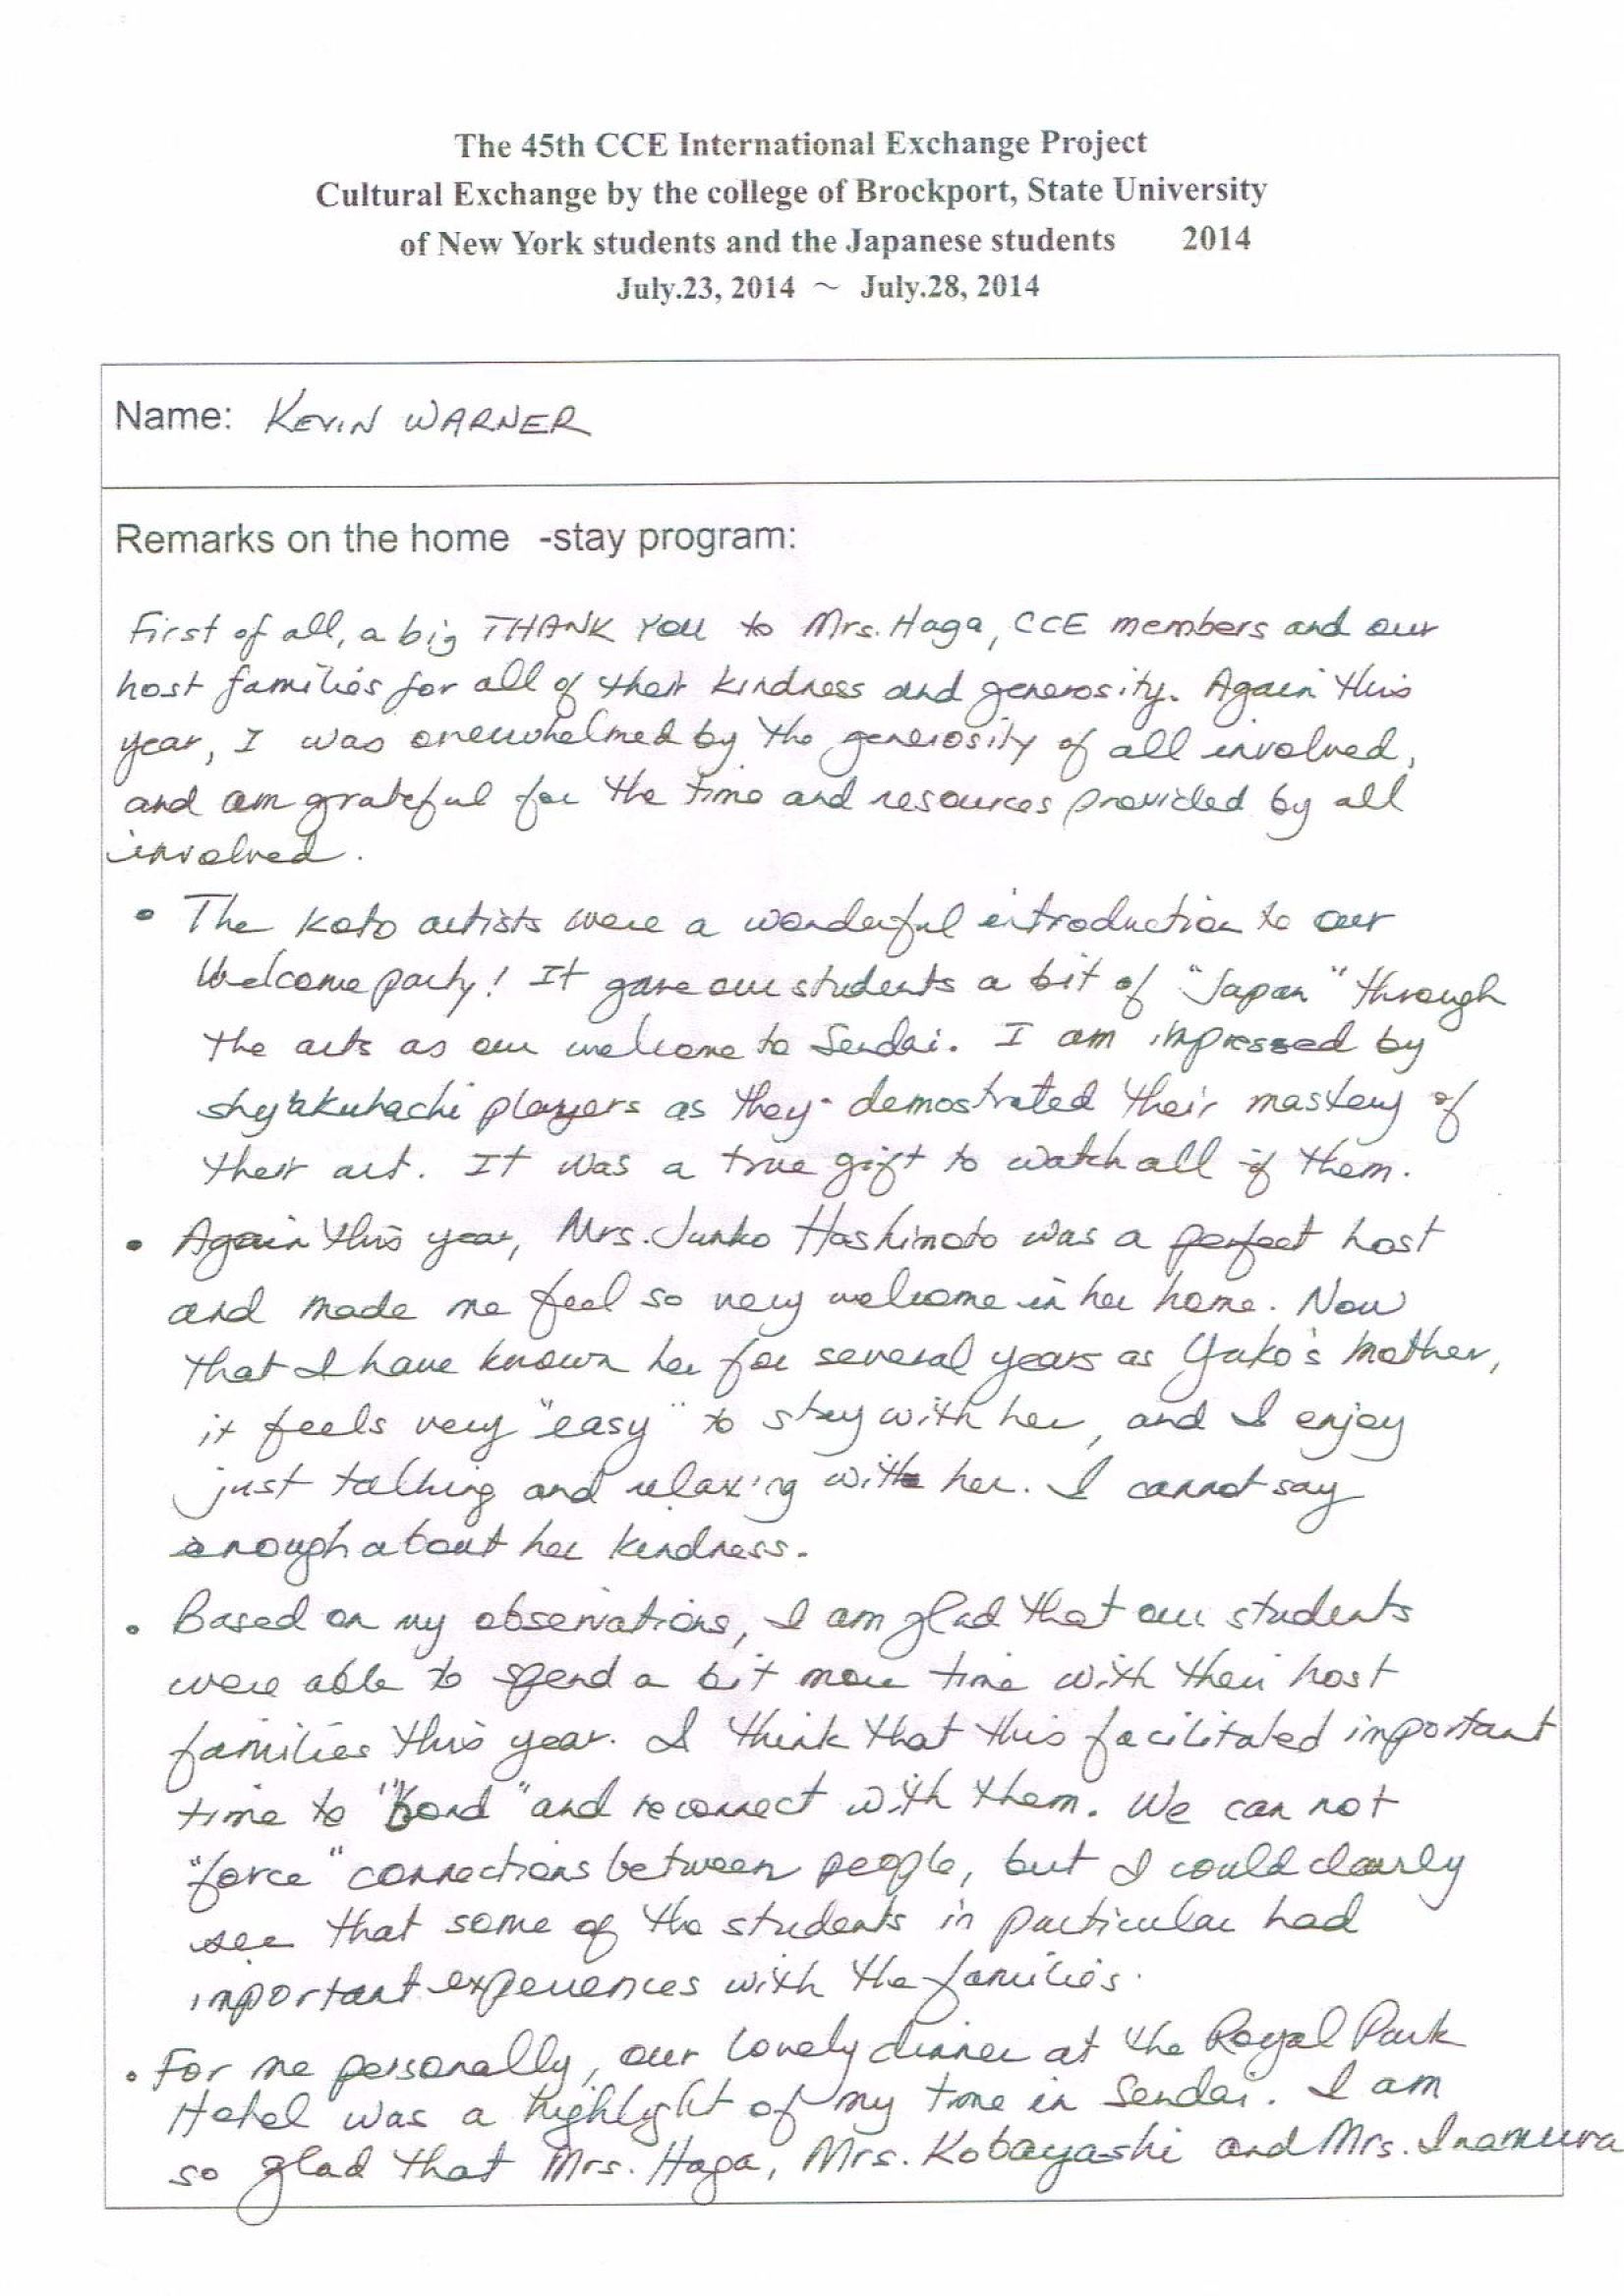 The 45th CCE International Exchange Project
Cultural Exchange by the college of Brockport, State University
of New York students and the Japanese students 2014
July.23, 2014 ～ July.28, 2014
Name: KEVIN WARNER
Remarks on the home -stay program:
First of all, a big THANK YOU to Mrs. Haga, CCE members and our
host families for all of their kindness and generosity. Again this
year, I was overwhelmed by the generosity of all involved,
and am grateful for the time and resources provided by all
involved.
• The koto artists were a wonderful introduction to our
Welcome party! It gave our students a bit of "Japan" through
the arts as our welcome to Sendai. I am impressed by
shyakuhachi players as they demostrated their mastery of
their art. It was a true gift to watch all of them.
• Again this year, Mrs. Junko Hashimoto was a perfect host
and made me feel so very welcome in her home. Now
that I have known her for several years as Yuko's mother,
it feels very "easy" to stay with her, and I enjoy
just talking and relaxing with her. I cannot say
enough about her kindness.
• Based on my observations, I am glad that our students
were able to spend a bit more time with their host
families this year. I think that this facilitated important
time to "bond" and reconnect with them. We can not
"force" connections between people, but I could clearly
see that some of the students in particular had
important experiences with the families.
• For me personally, our lovely dinner at the Royal Park
Hotel was a highlight of my time in Sendai. I am
so glad that Mrs. Haga, Mrs. Kobayashi and Mrs. Inamura